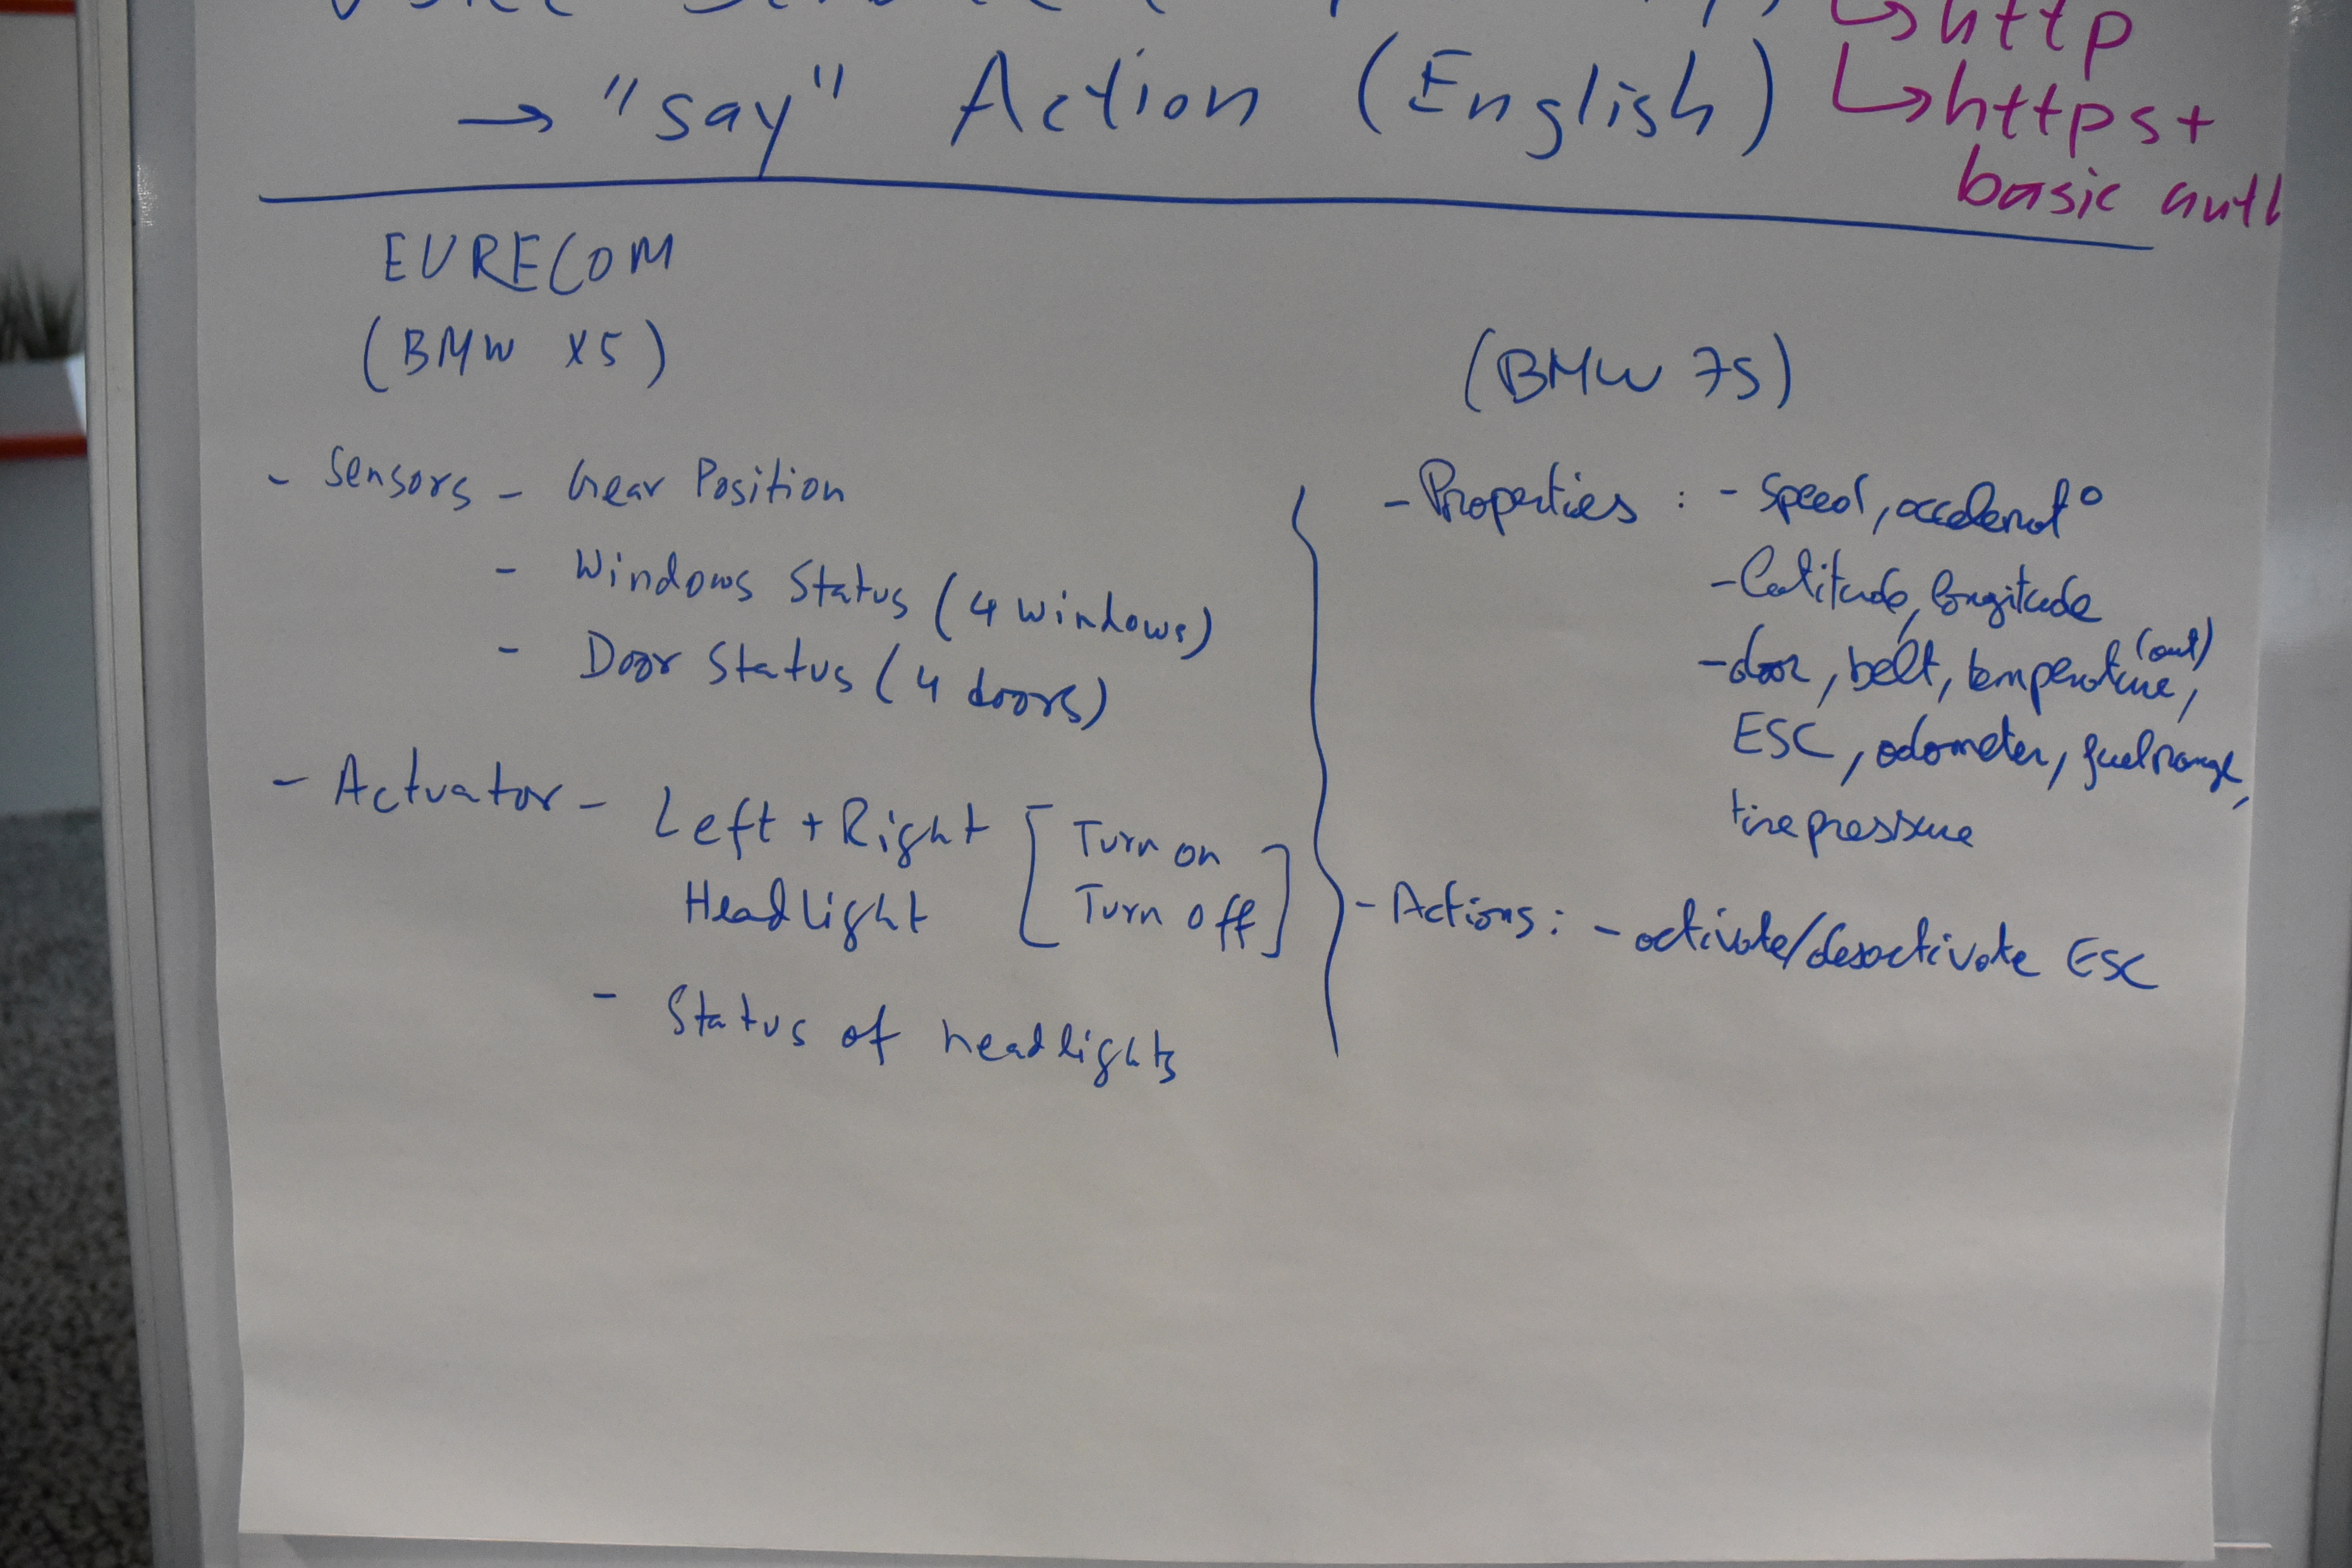 http
→ "say" Action (English)
https +
basic auth
EURECOM
(BMW X5)
- Sensors - Gear Position
- Windows Status (4 windows)
- Door Status (4 doors)
- Actuator - Left + Right [Turn on
Headlight Turn off]
- Status of headlights
(BMW 7S)
- Properties : - Speed, accelerat°
- latitude, longitude
- door, belt, temperature (out),
ESC, odometer, fuel range,
tire pressure
- Actions : - activate/desactivate ESC